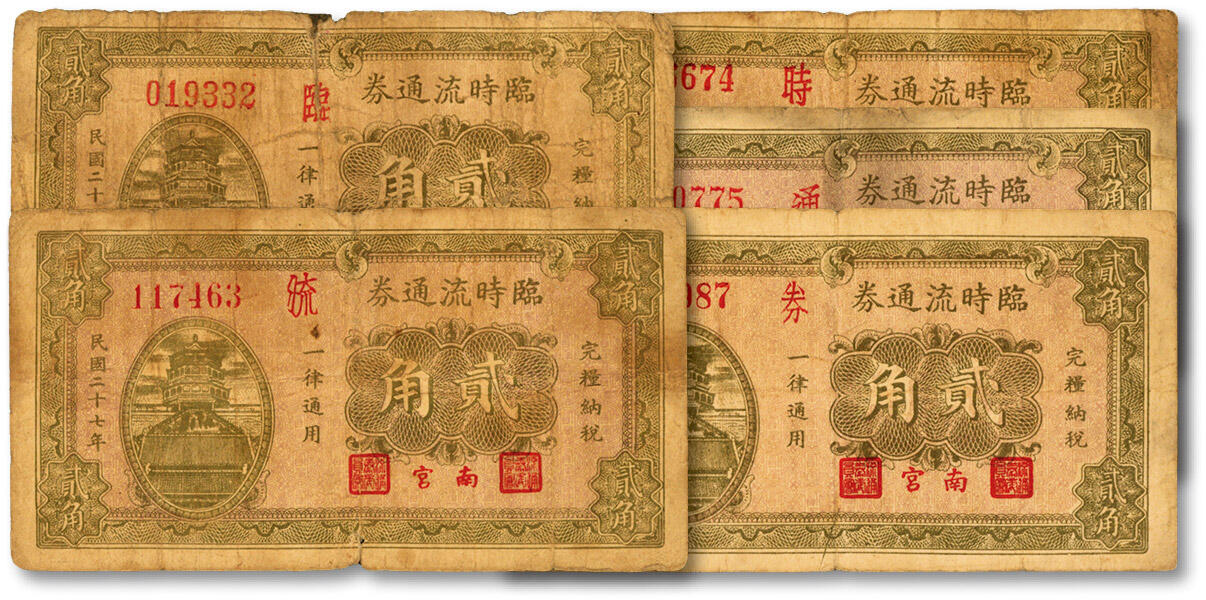 貳角
貳角
019332 臨
臨時流通券
完糧納
貳角
一律通
民國二十
674 時
臨時流通券
貳角
0775 通
臨時流通券
貳角
貳角
貳角
117463 流
臨時流通券
完糧納稅
貳角
一律通用
民國二十七年
南宮
貳角
貳角
987 券
臨時流通券
貳角
完糧納稅
貳角
一律通用
南宮
貳角